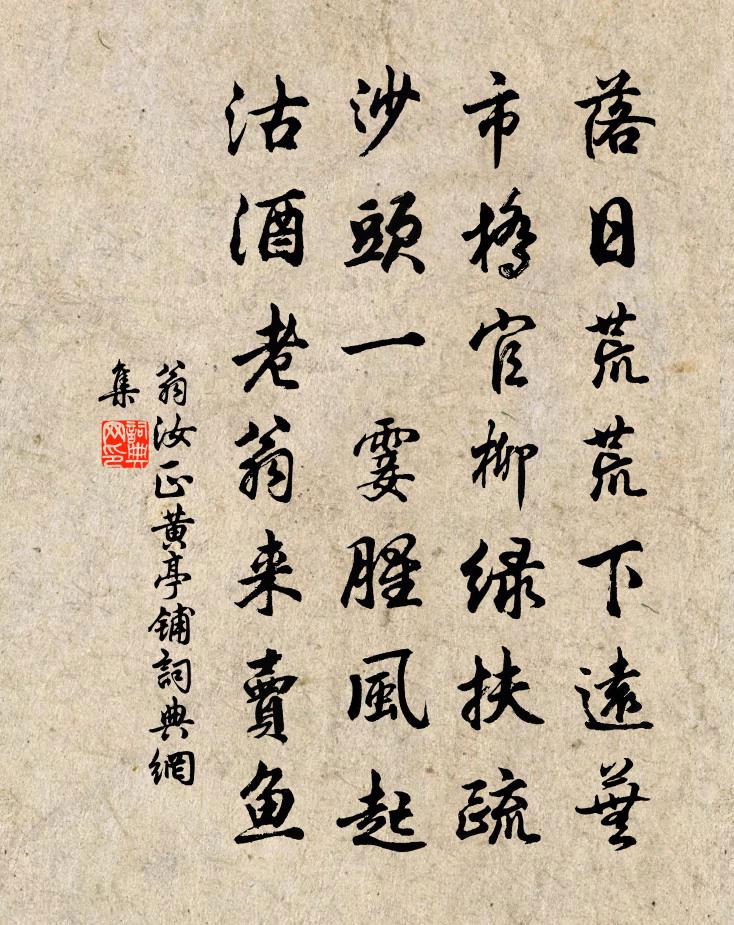 落日荒荒下遠蕪
市橋官柳綠扶疏
沙頭一霎腥風起
沽酒老翁来賣魚
翁汝正黄亭鋪詞典網
集
詞典
网印